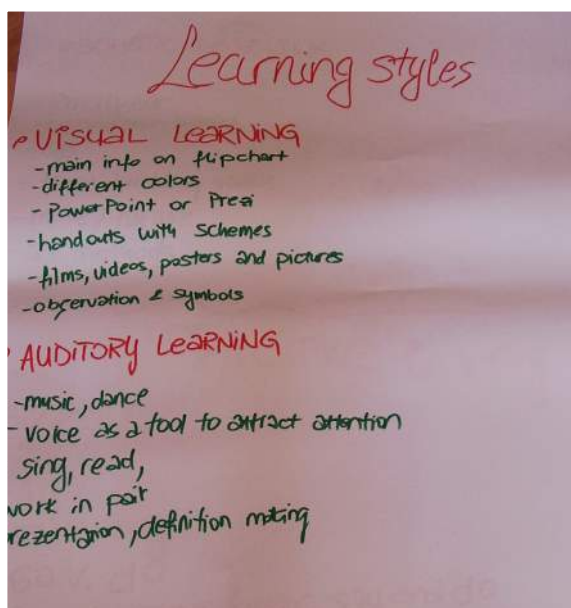 Learning styles
VISUAL LEARNING
-main info on flipchart
-different colors
-PowerPoint or Prezi
-handouts with schemes
-films, videos, posters and pictures
-observation & symbols
AUDITORY LEARNING
-music, dance
- voice as a tool to attract attention
sing, read,
work in pair
rezentation, definition making